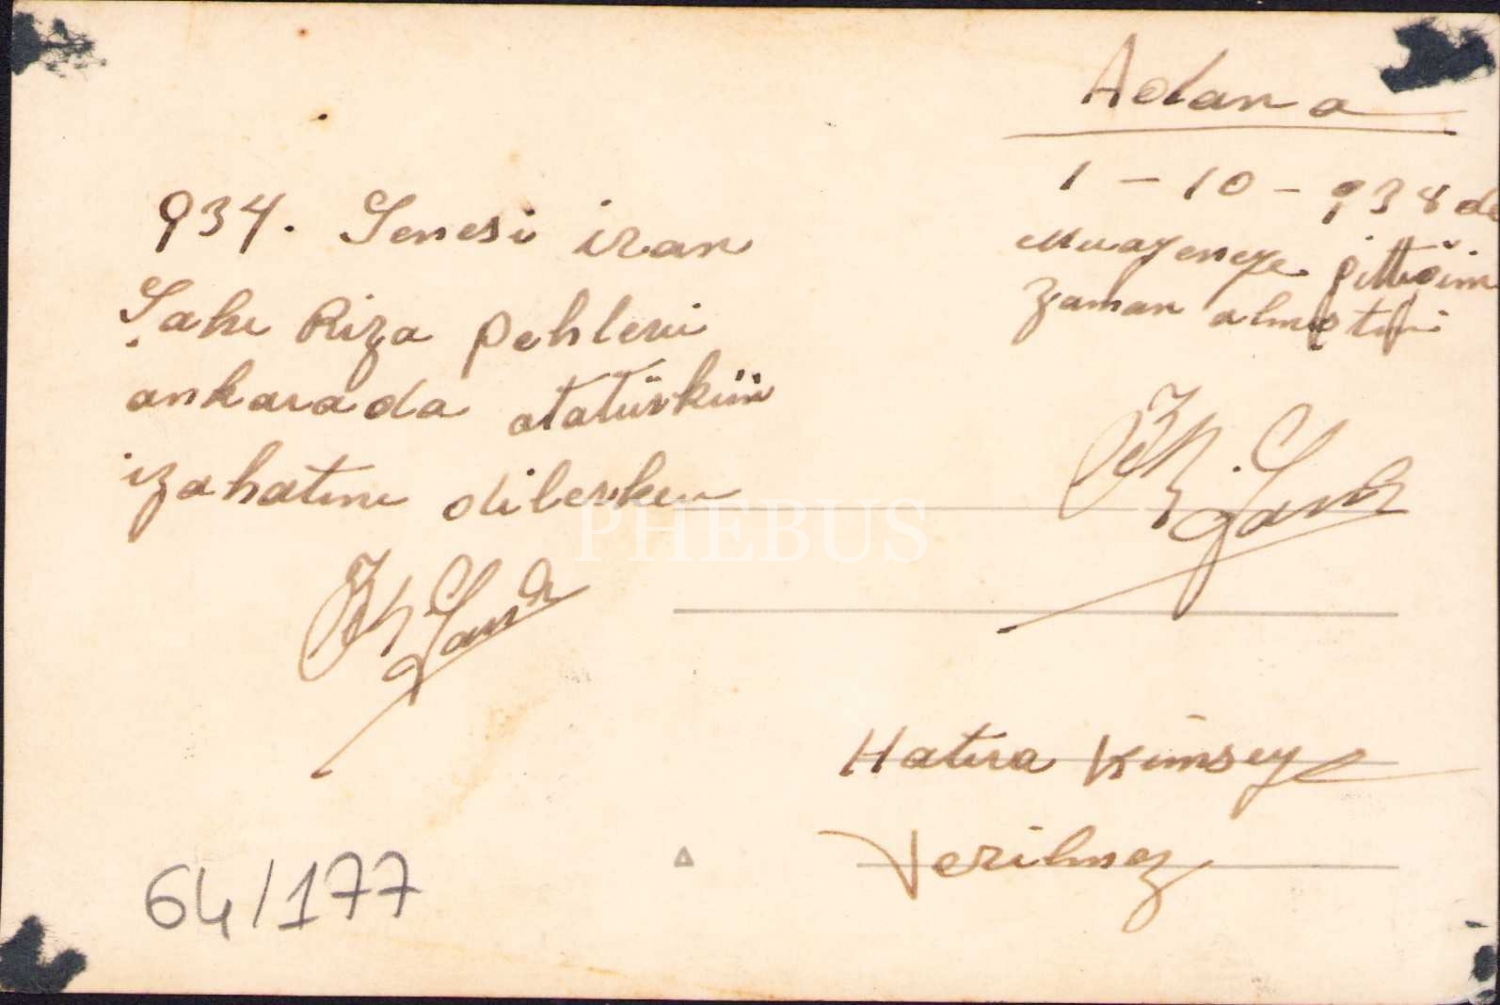 934. Senesi iran
Şahı Riza pehlevi
ankarada atatürkün
izahatını dilerken
Adana
1 - 10 - 938 de
Muayeneye gittiğim
zaman almıştım
Hatıra Kimseye
Verilmez
64/177
PHEBUS